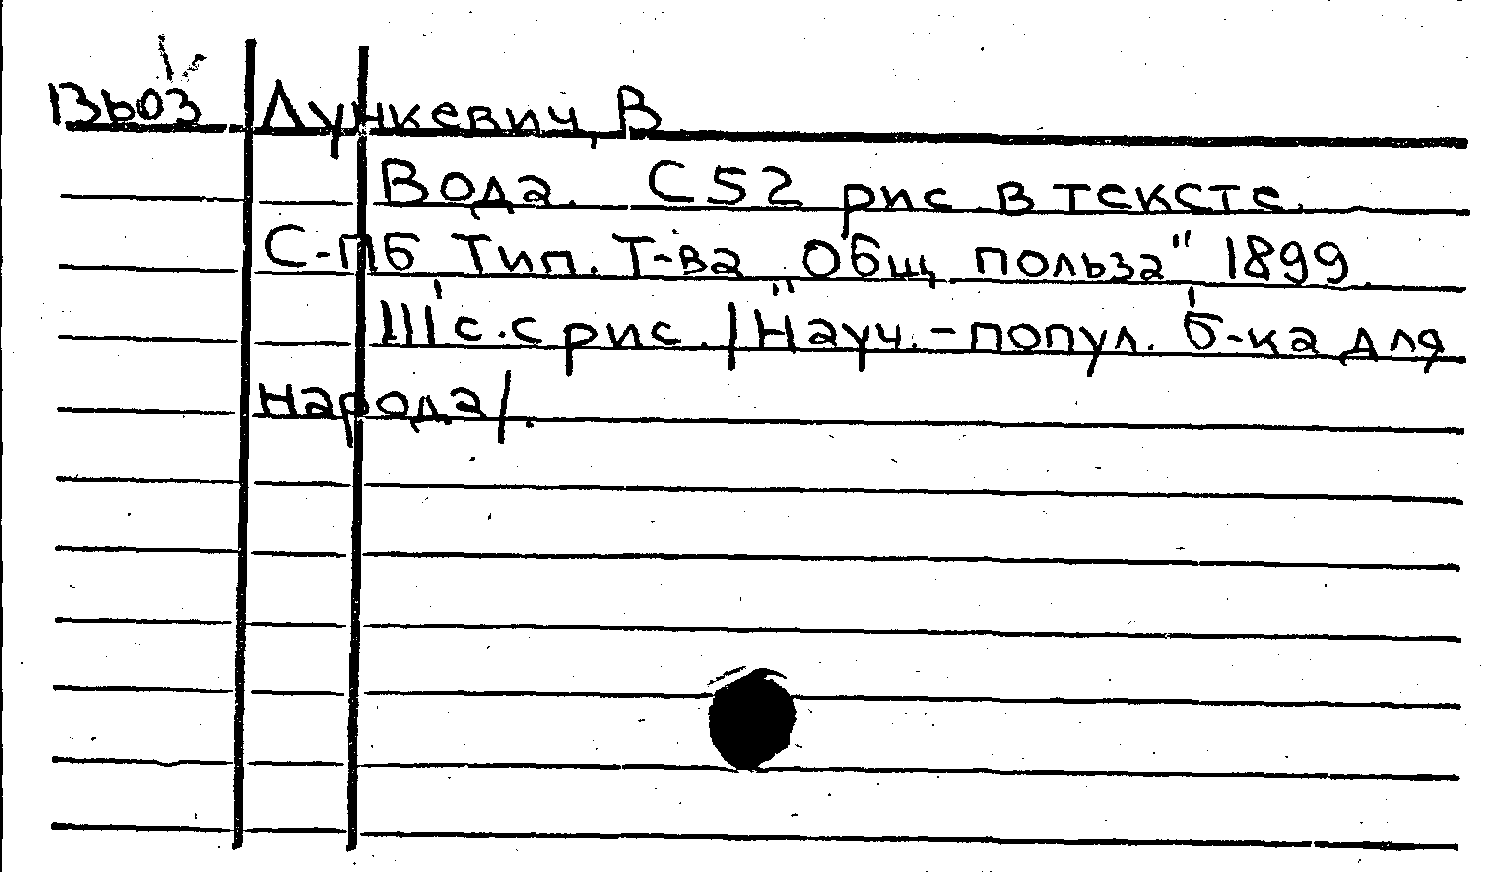 Вьоз Лункевич, В
Вода. С 52 рис. в тексте.
С-ПБ Тип. Т-ва "Общ. польза" 1899.
111 с. с рис. /Науч.-попул. б-ка для
народа/.